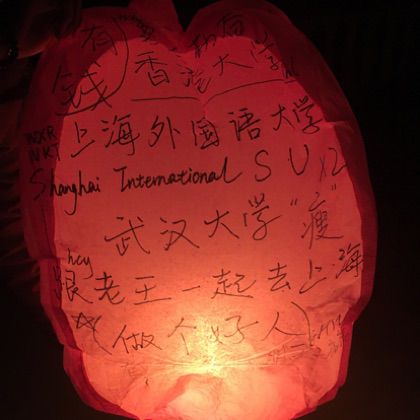 有钱
香港大学
WXR 上海外国语大学
WKT
Shanghai International S U x2
武汉大学"瘦"
hcy
跟老王一起去上海
☆(做个好人)